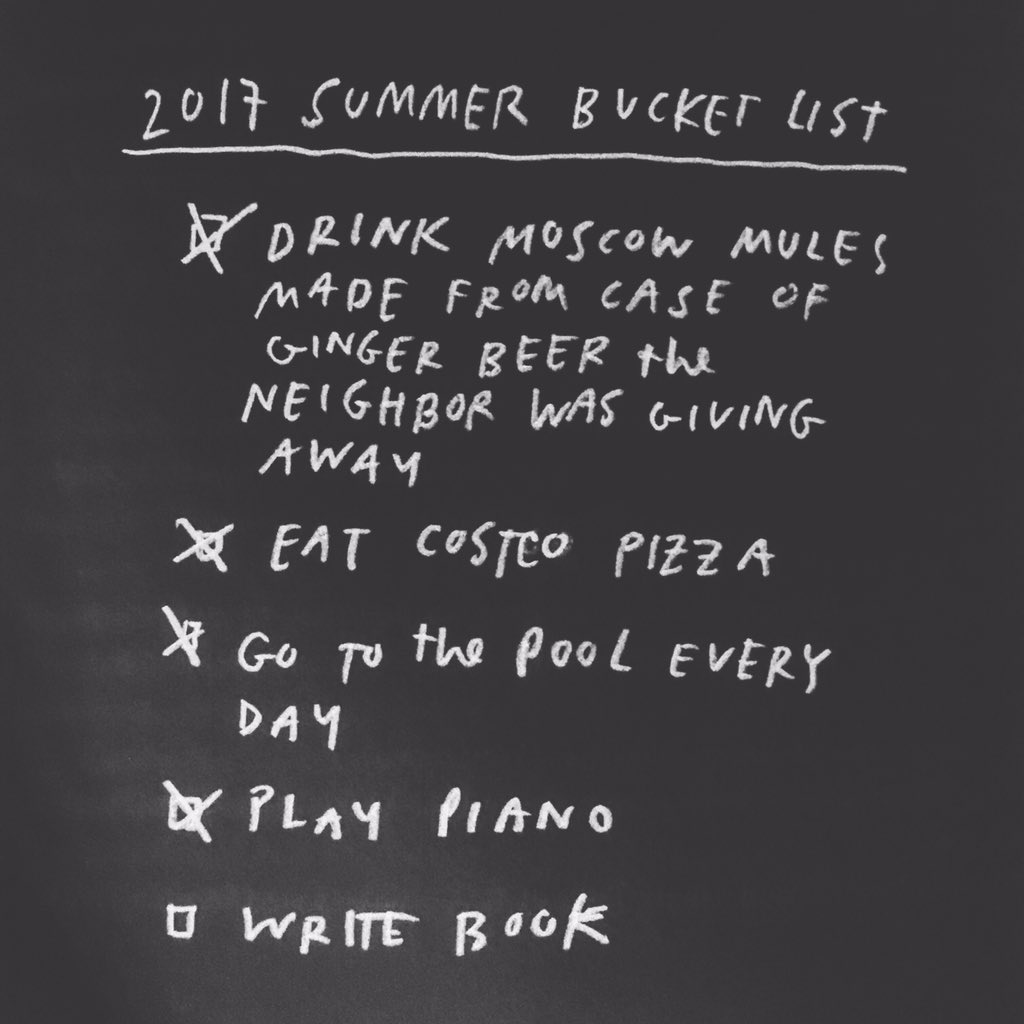 2017 SUMMER BUCKET LIST
DRINK MOSCOW MULES
MADE FROM CASE OF
GINGER BEER the
NEIGHBOR WAS GIVING
AWAY
EAT COSTCO PIZZA
GO TO the POOL EVERY
DAY
PLAY PIANO
WRITE BOOK